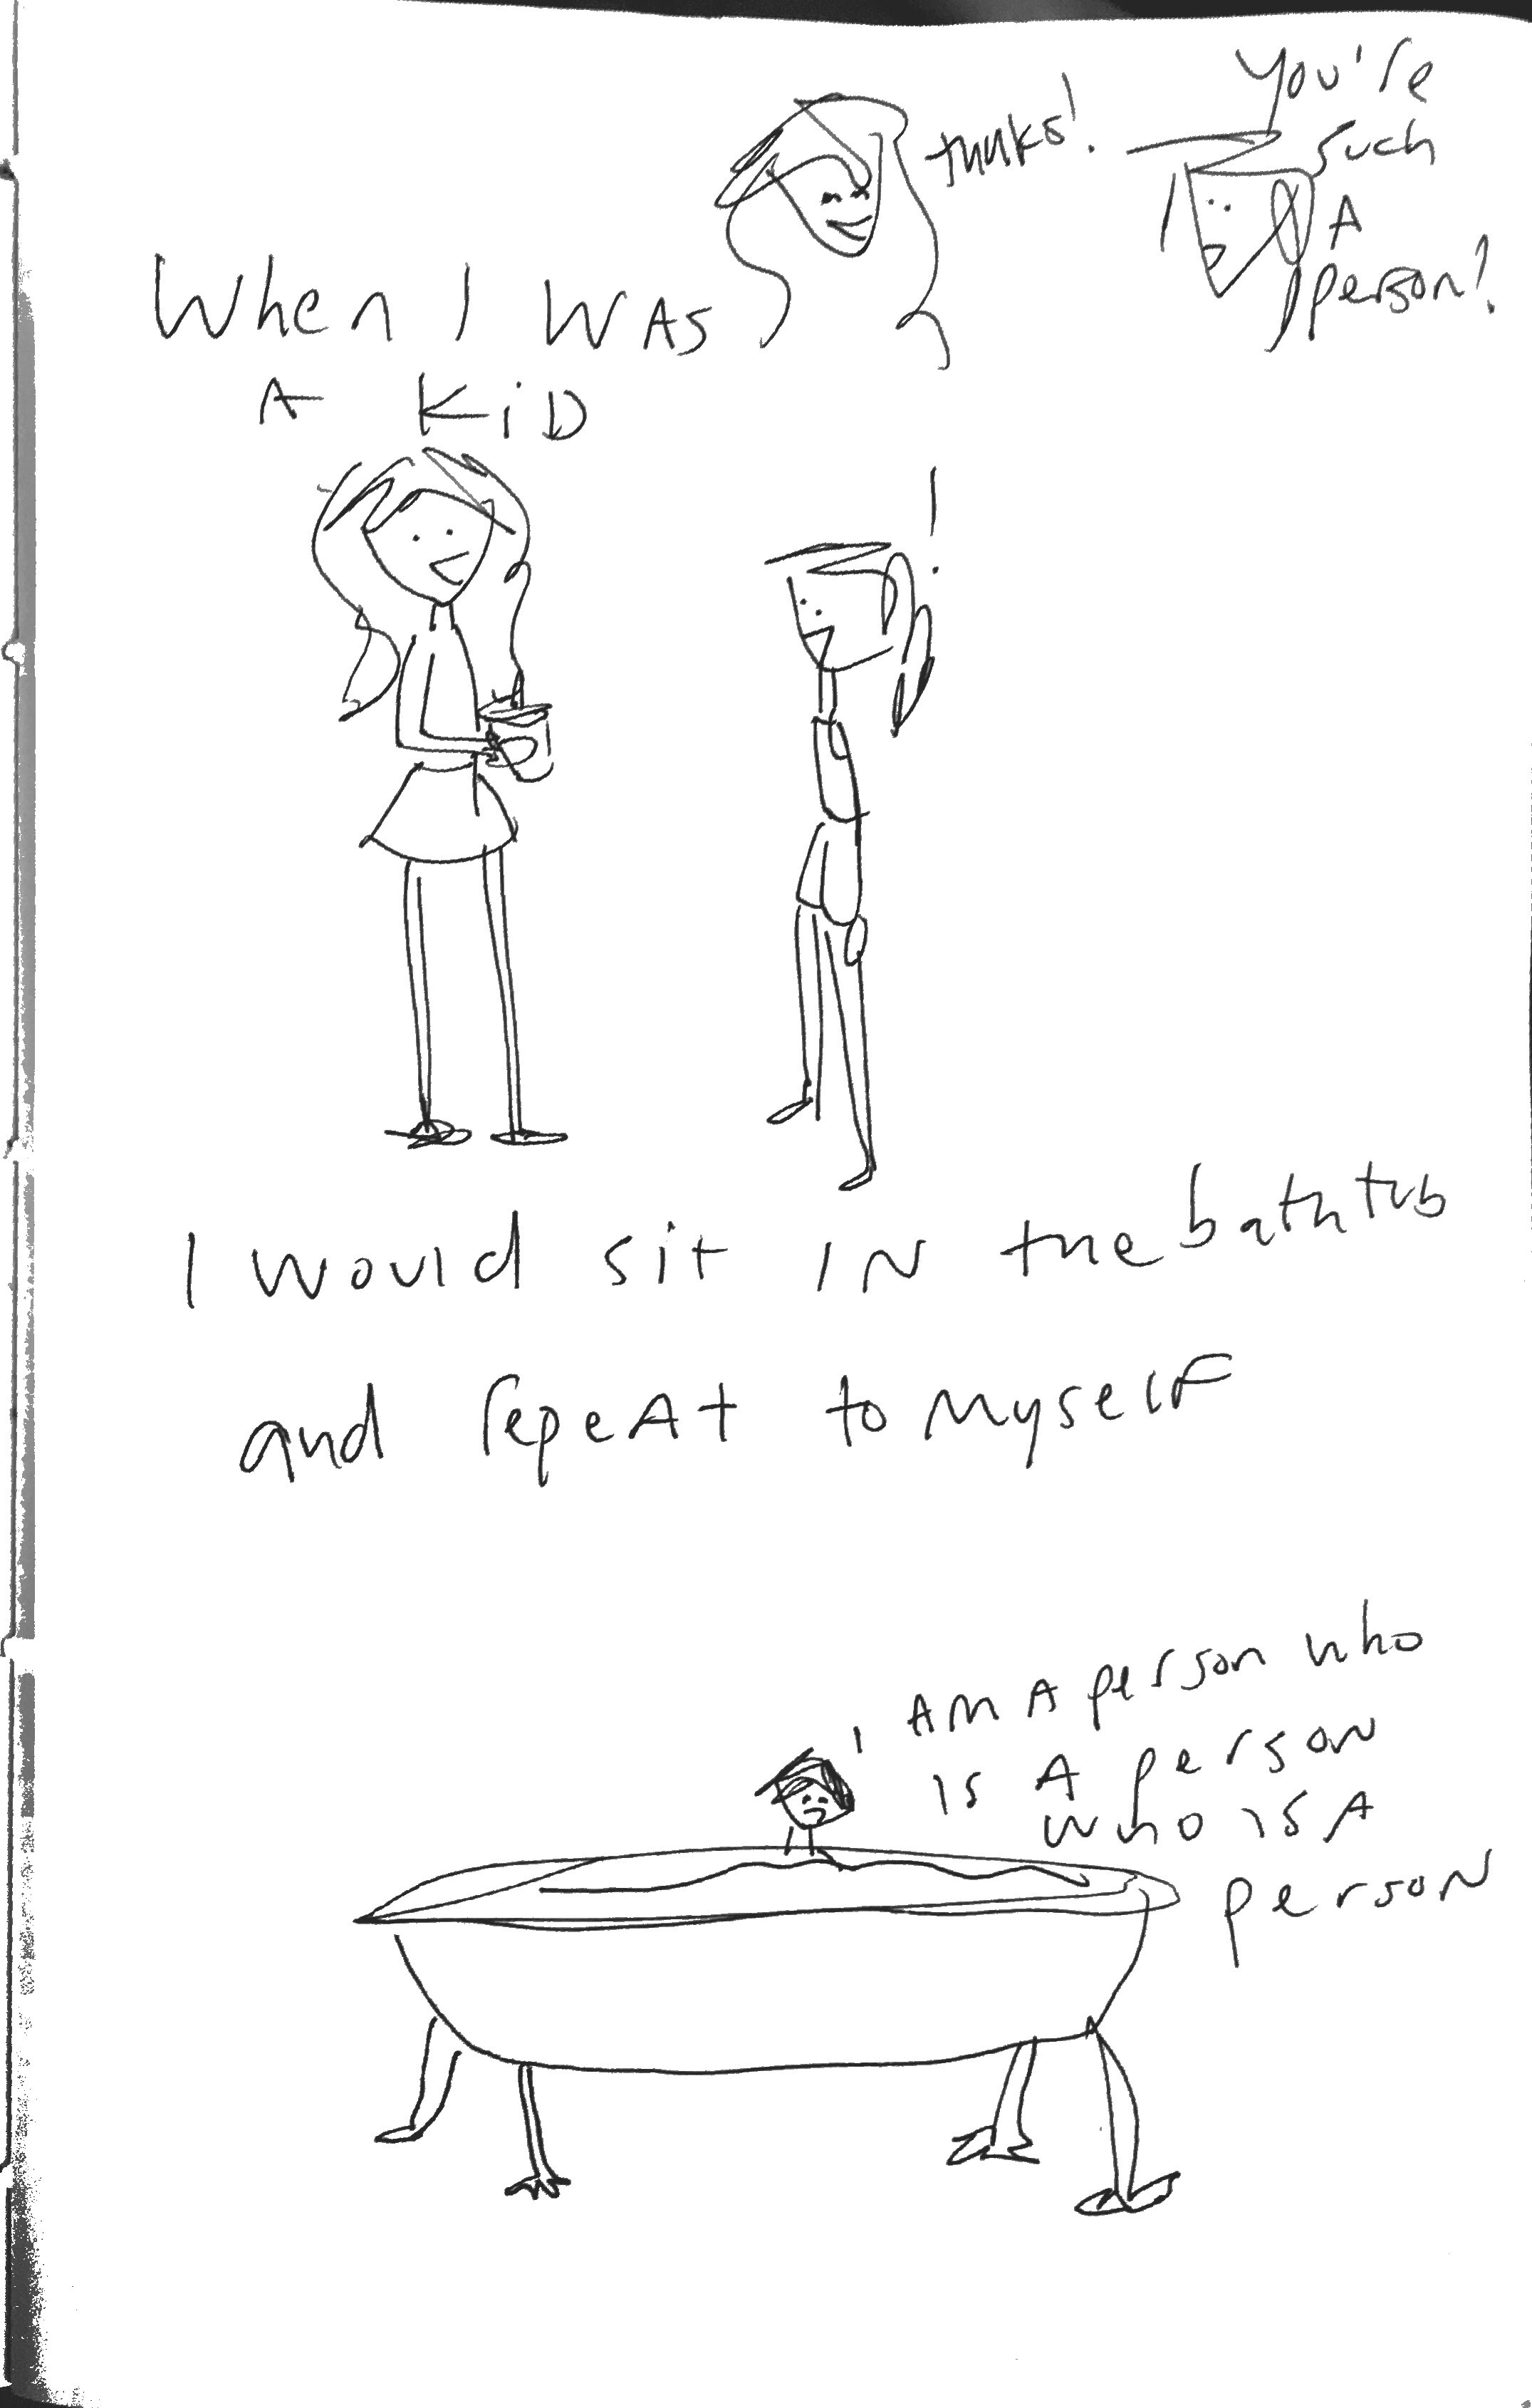 thnks!
You're
such
A
person!
When I WAS
A KiD
!
I would sit IN the bathtub
and repeAt to Myself
I AM A person who
is A person
who is A
person